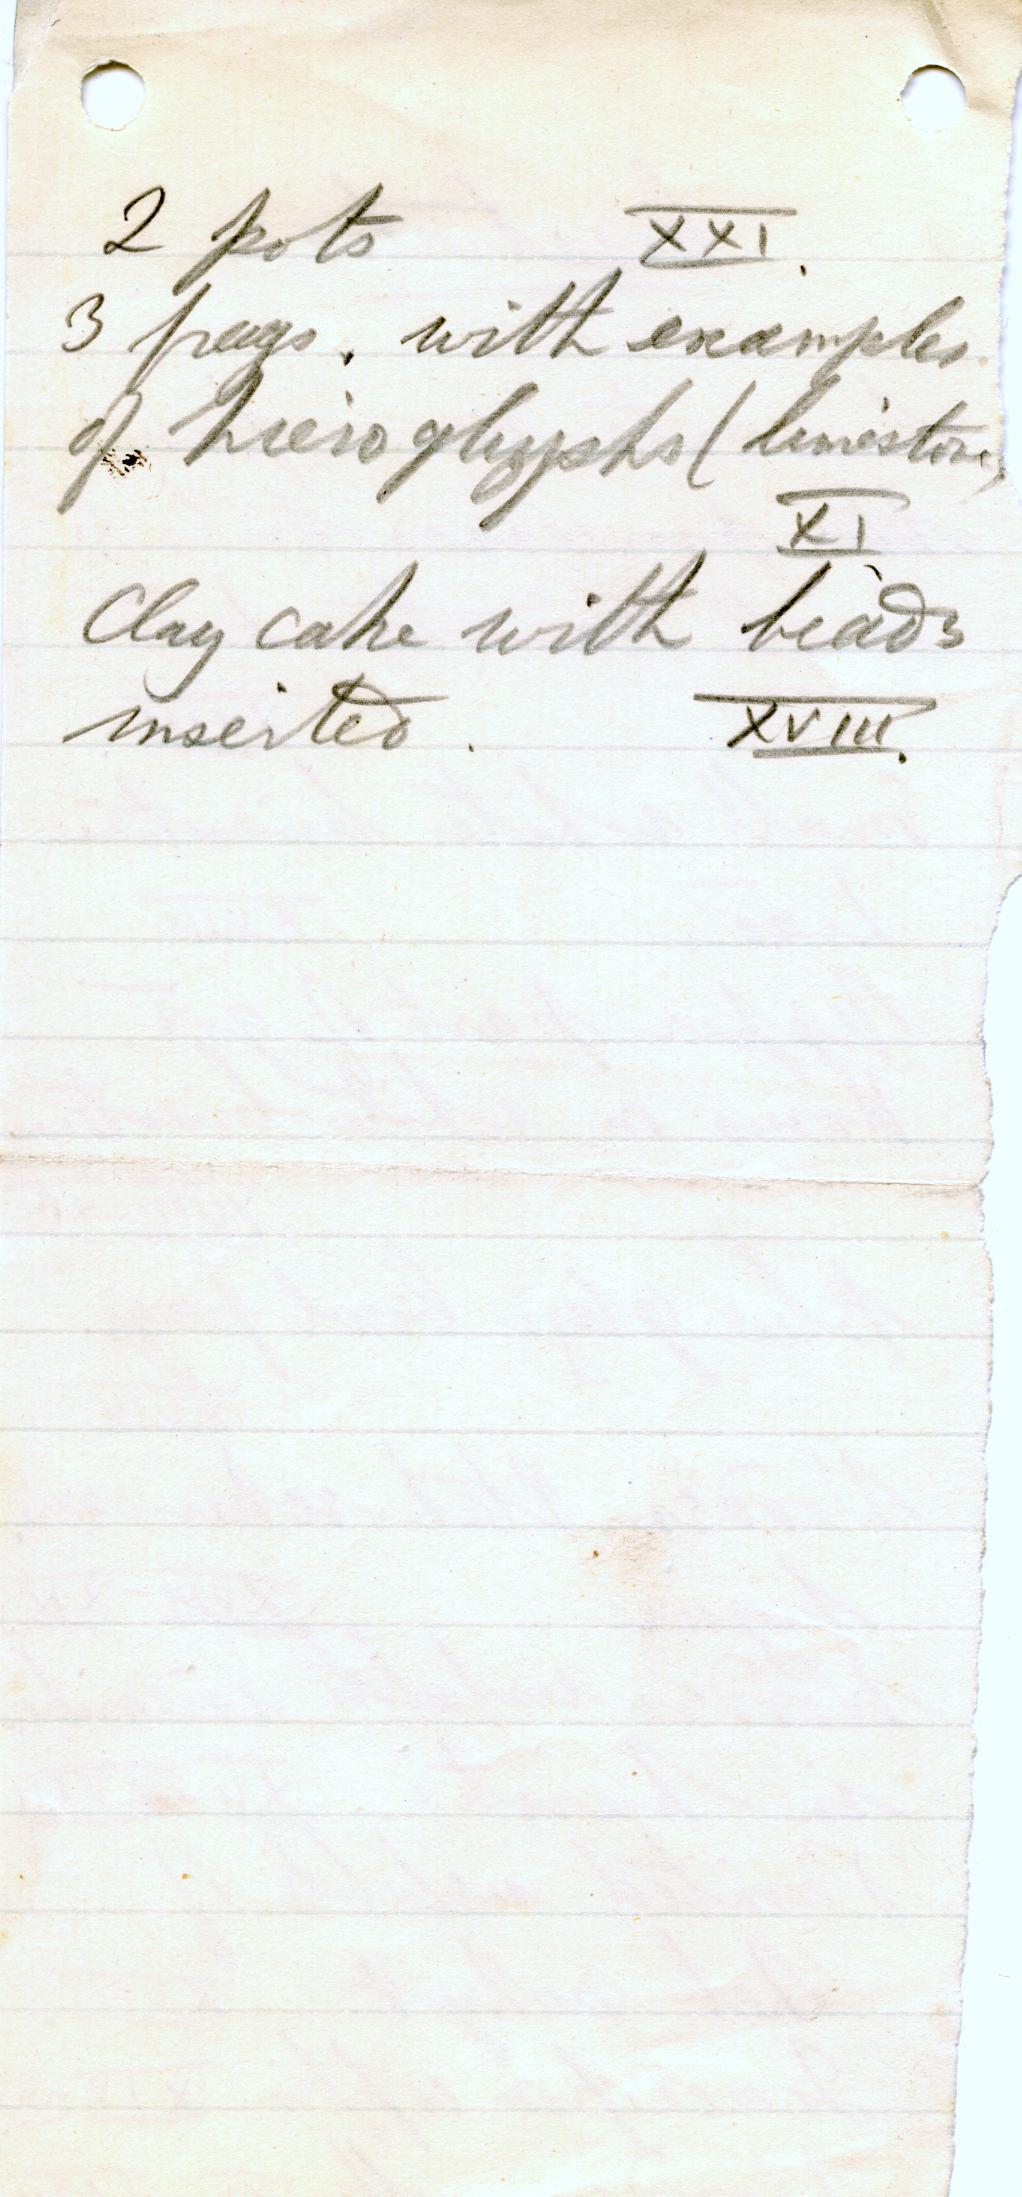 2 pots XXI.
3 frags. with examples
of hieroglyphs (limestone)
XI
Clay cake with beads
inserted. XVIII.